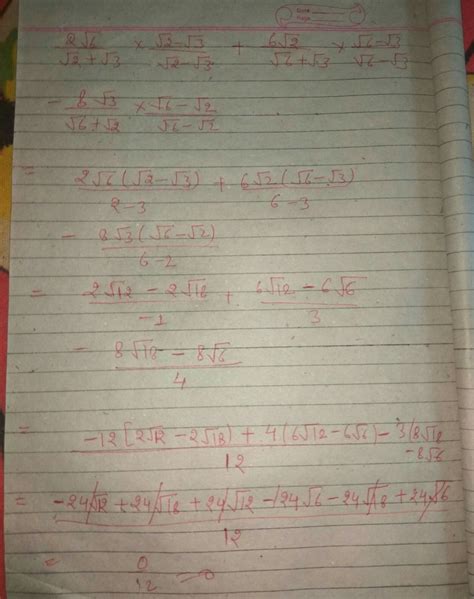 2√6/√2+√3 × √2-√3/√2-√3 + 6√2/√6+√3 × √6-√3/√6-√3
- 8√3/√6+√2 × √6-√2/√6-√2
= 2√6(√2-√3)/2-3 + 6√2(√6-√3)/6-3
- 8√3(√6-√2)/6-2
= 2√12-2√18/-1 + 6√12-6√6/3
- 8√18-8√6/4
= -12[2√12-2√18)+4(6√12-6√6)-3(8√18-8√6/12
= -24√12+24√18+24√12-24√6-24√18+24√6/12
= 0/12 = 0